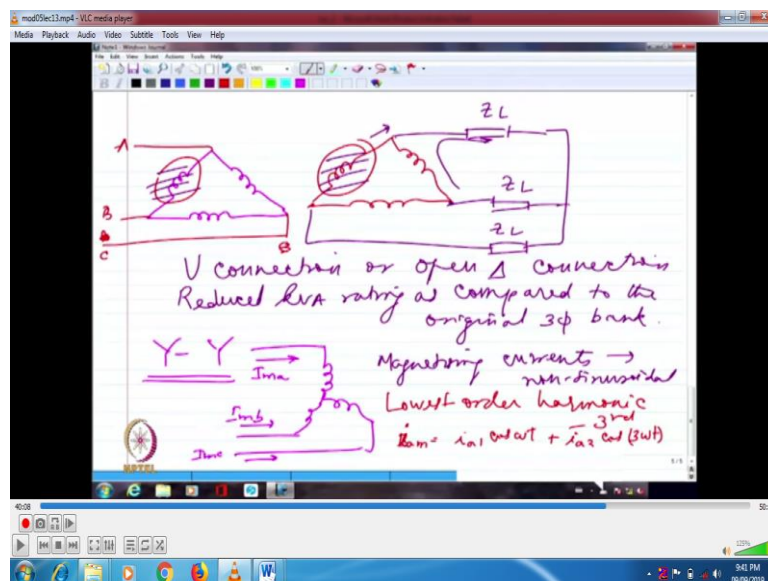 mod05lec13.mp4 - VLC media player
Media Playback Audio Video Subtitle Tools View Help
Note1 - Windows Journal
File Edit View Insert Actions Tools Help
A
B
C
B
Z L
Z L
Z L
V connection or open Δ connection
Reduced kVA rating as compared to the
original 3φ bank.
Y - Y
Ima
Imb
Imc
Magnetizing currents →
non-sinusoidal
Lowest order harmonic
- 3rd
iam = ia1 cos ωt + ia3 cos (3ωt)
NPTEL
5/5
40:08
125%
9:41 PM